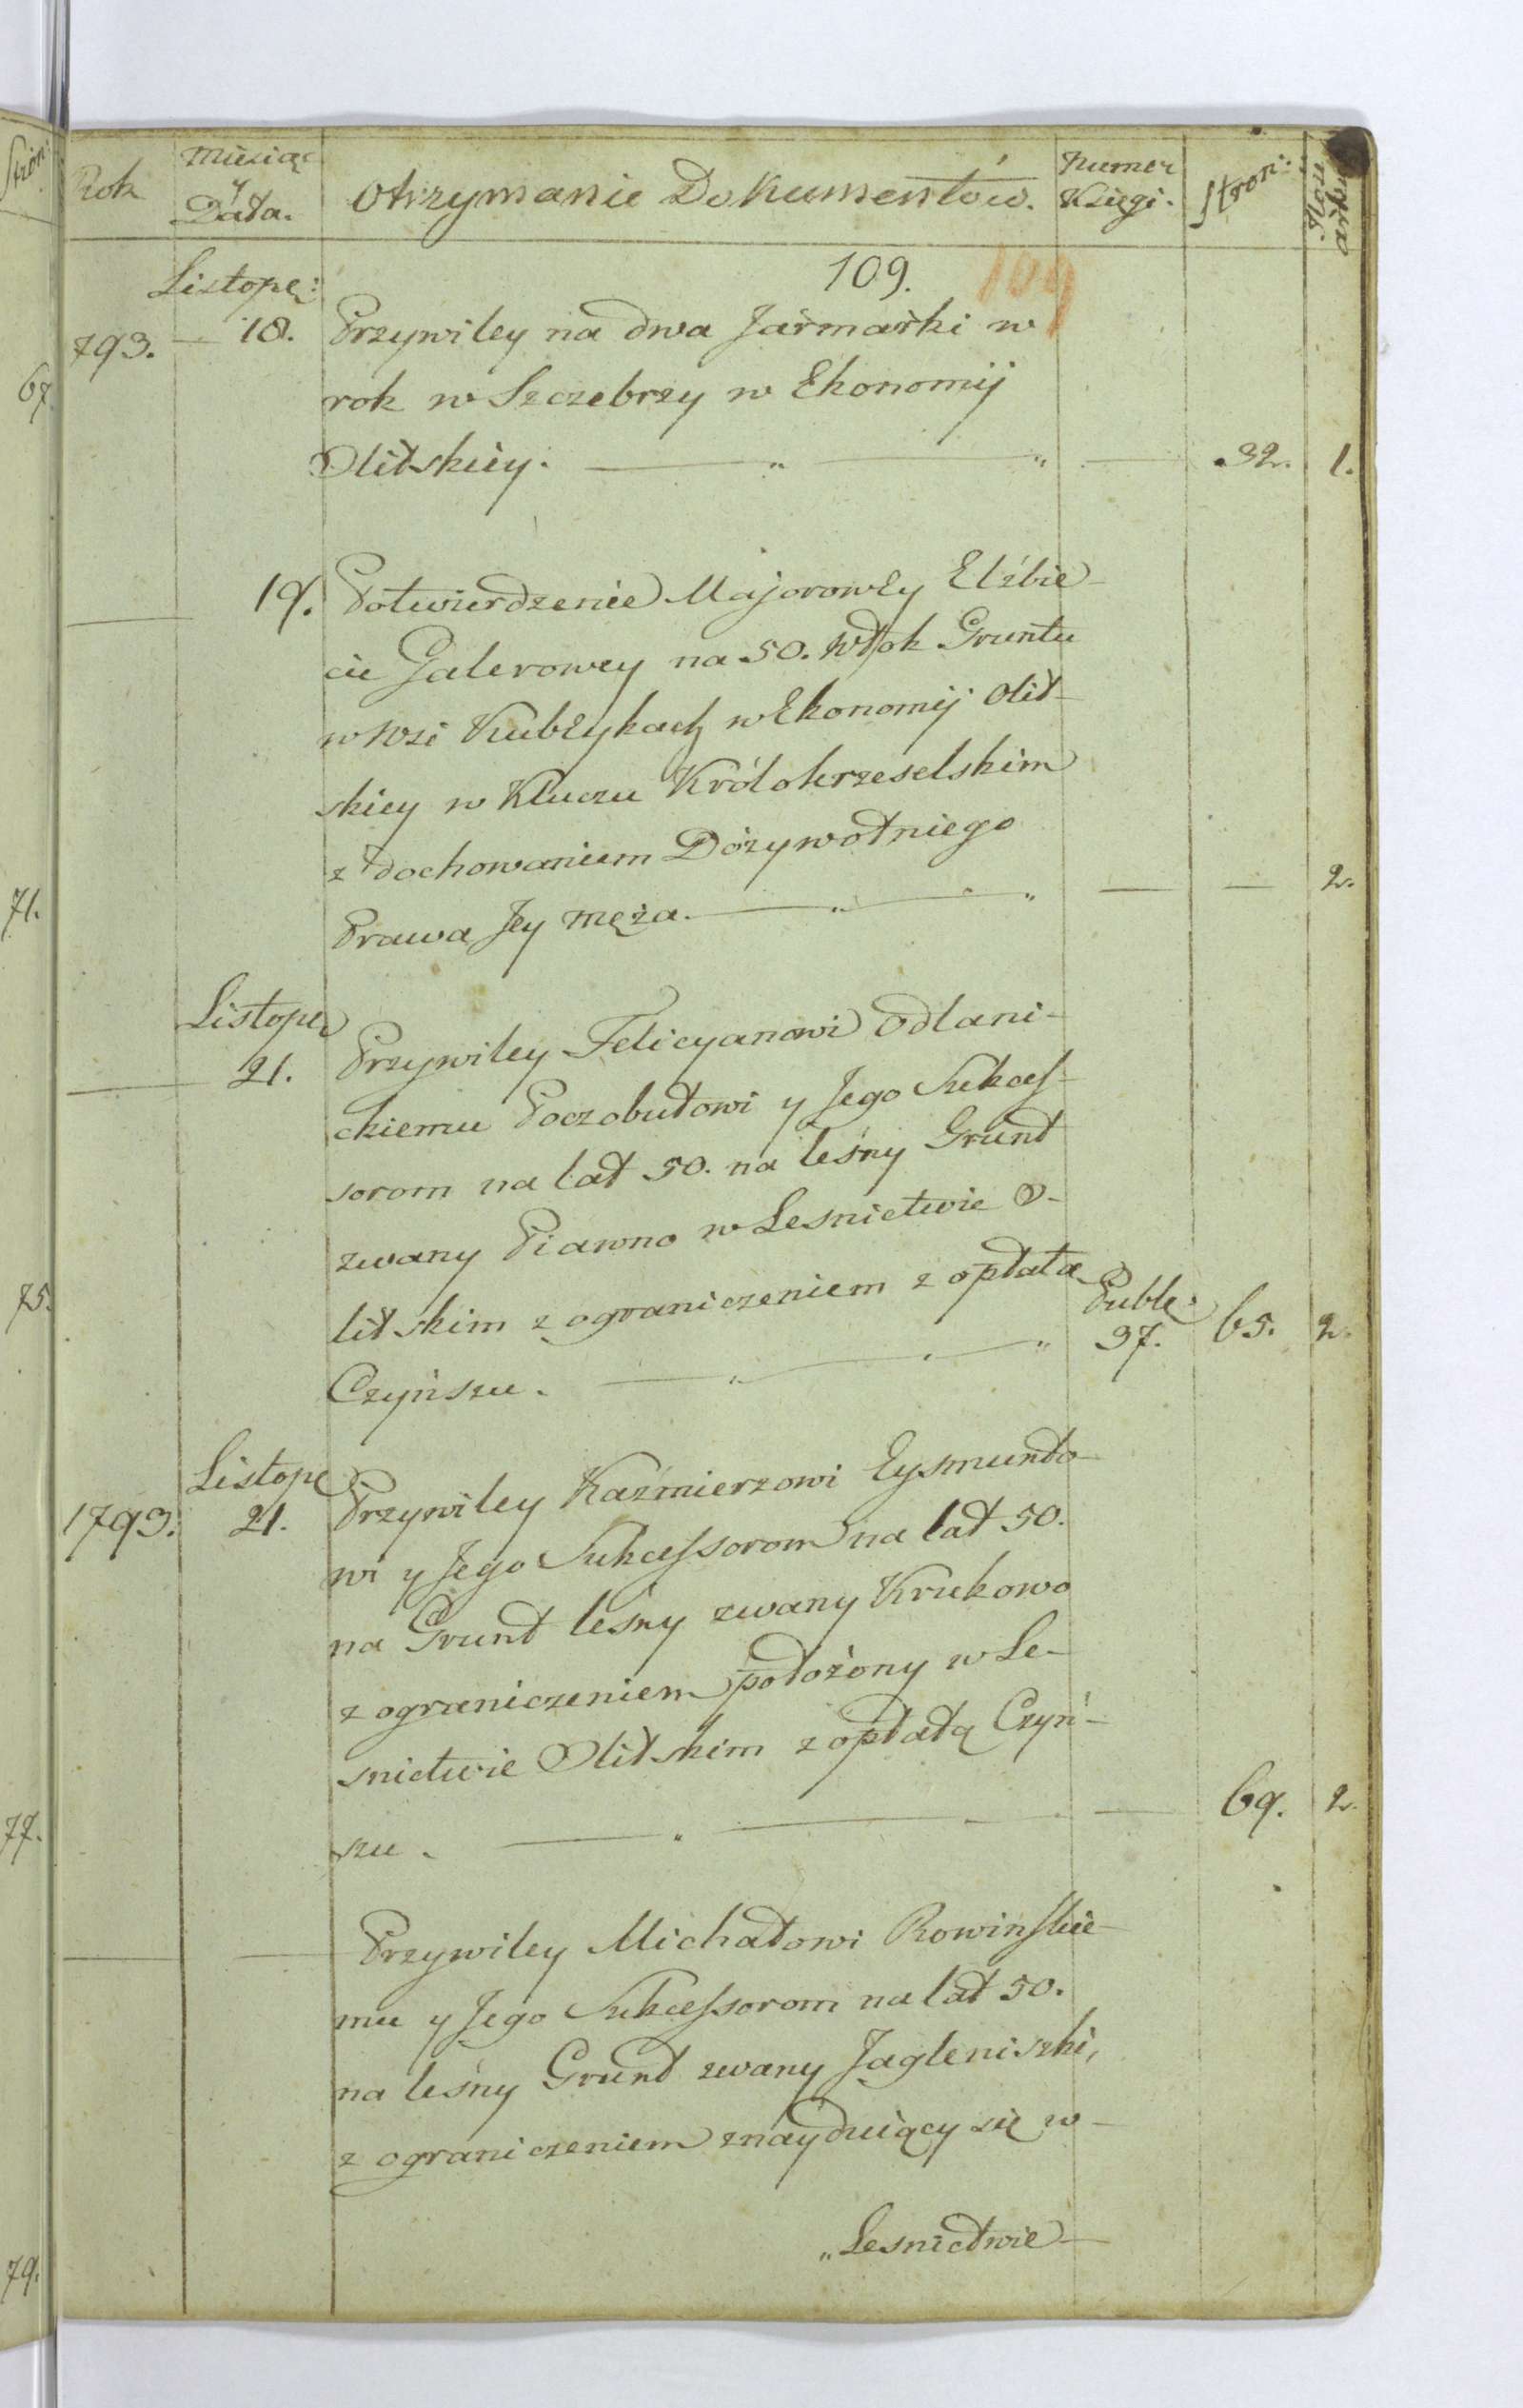 Stron:
Rok
Miesiąc
y
Data.
Otrzymanie Dokumentów.
Numer
Księgi.
Stron:
109.
109
Listope:
793. — 18. Przywiley na dwa Jarmarki w
rok w Szczebrzy w Ekonomij
67
Olitskiey. — „ — „ — 32. 1.
— 19. Potwierdzenie Majorowey Elżbie-
cie Galerowey na 50. Włok Gruntu
w Wsi Kublykach w Ekonomij Olit-
skiey w Kluczu Królokrzeselskim
z dochowaniem Dożywotniego
71.
Prawa Jey Męża. — „ — „ — — 2.
Listope
— 21. Przywiley Felicyanowi Odlani-
ckiemu Poczobutowi y Jego Sukces-
sorom na lat 50. na leśny Grunt
zwany Piawno w Lesnictwie O-
75.
litskim z ograniczeniem z opłatą
Czyńszu. — „ — „ Puble: 37. 65. 2.
Listope
1793. 21. Przywiley Kaźmierzowi Eysmunto-
wi y Jego Sukcessorom na lat 50.
na Grunt leśny zwany Krukowo
z ograniczeniem położony w Le-
snictwie Olitskim z opłatą Czyń-
77.
szu. — „ — 69. 2.
— — Przywiley Michałowi Rowinskie-
mu y Jego Sukcessorom na lat 50.
na leśny Grunt zwany Jagleniszki,
z ograniczeniem znayduiący się w-
„Lesnictwie—
79.